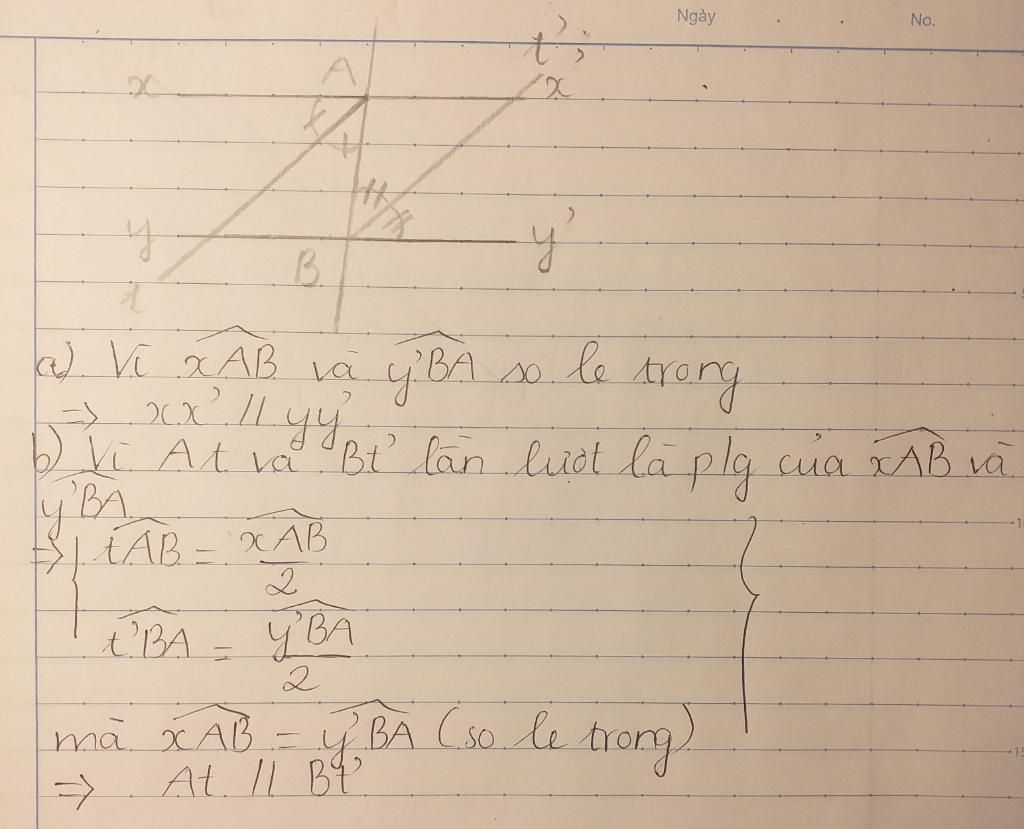 Ngày No.
t'
x A x'
y B y'
t
a) Vì xAB và y'BA so le trong
=> xx' // yy'
b) Vì At và Bt' lần lượt là p/g của xAB và
y'BA
=> { tAB = xAB/2
t'BA = y'BA/2 }
mà xAB = y'BA (so le trong)
=> At // Bt'